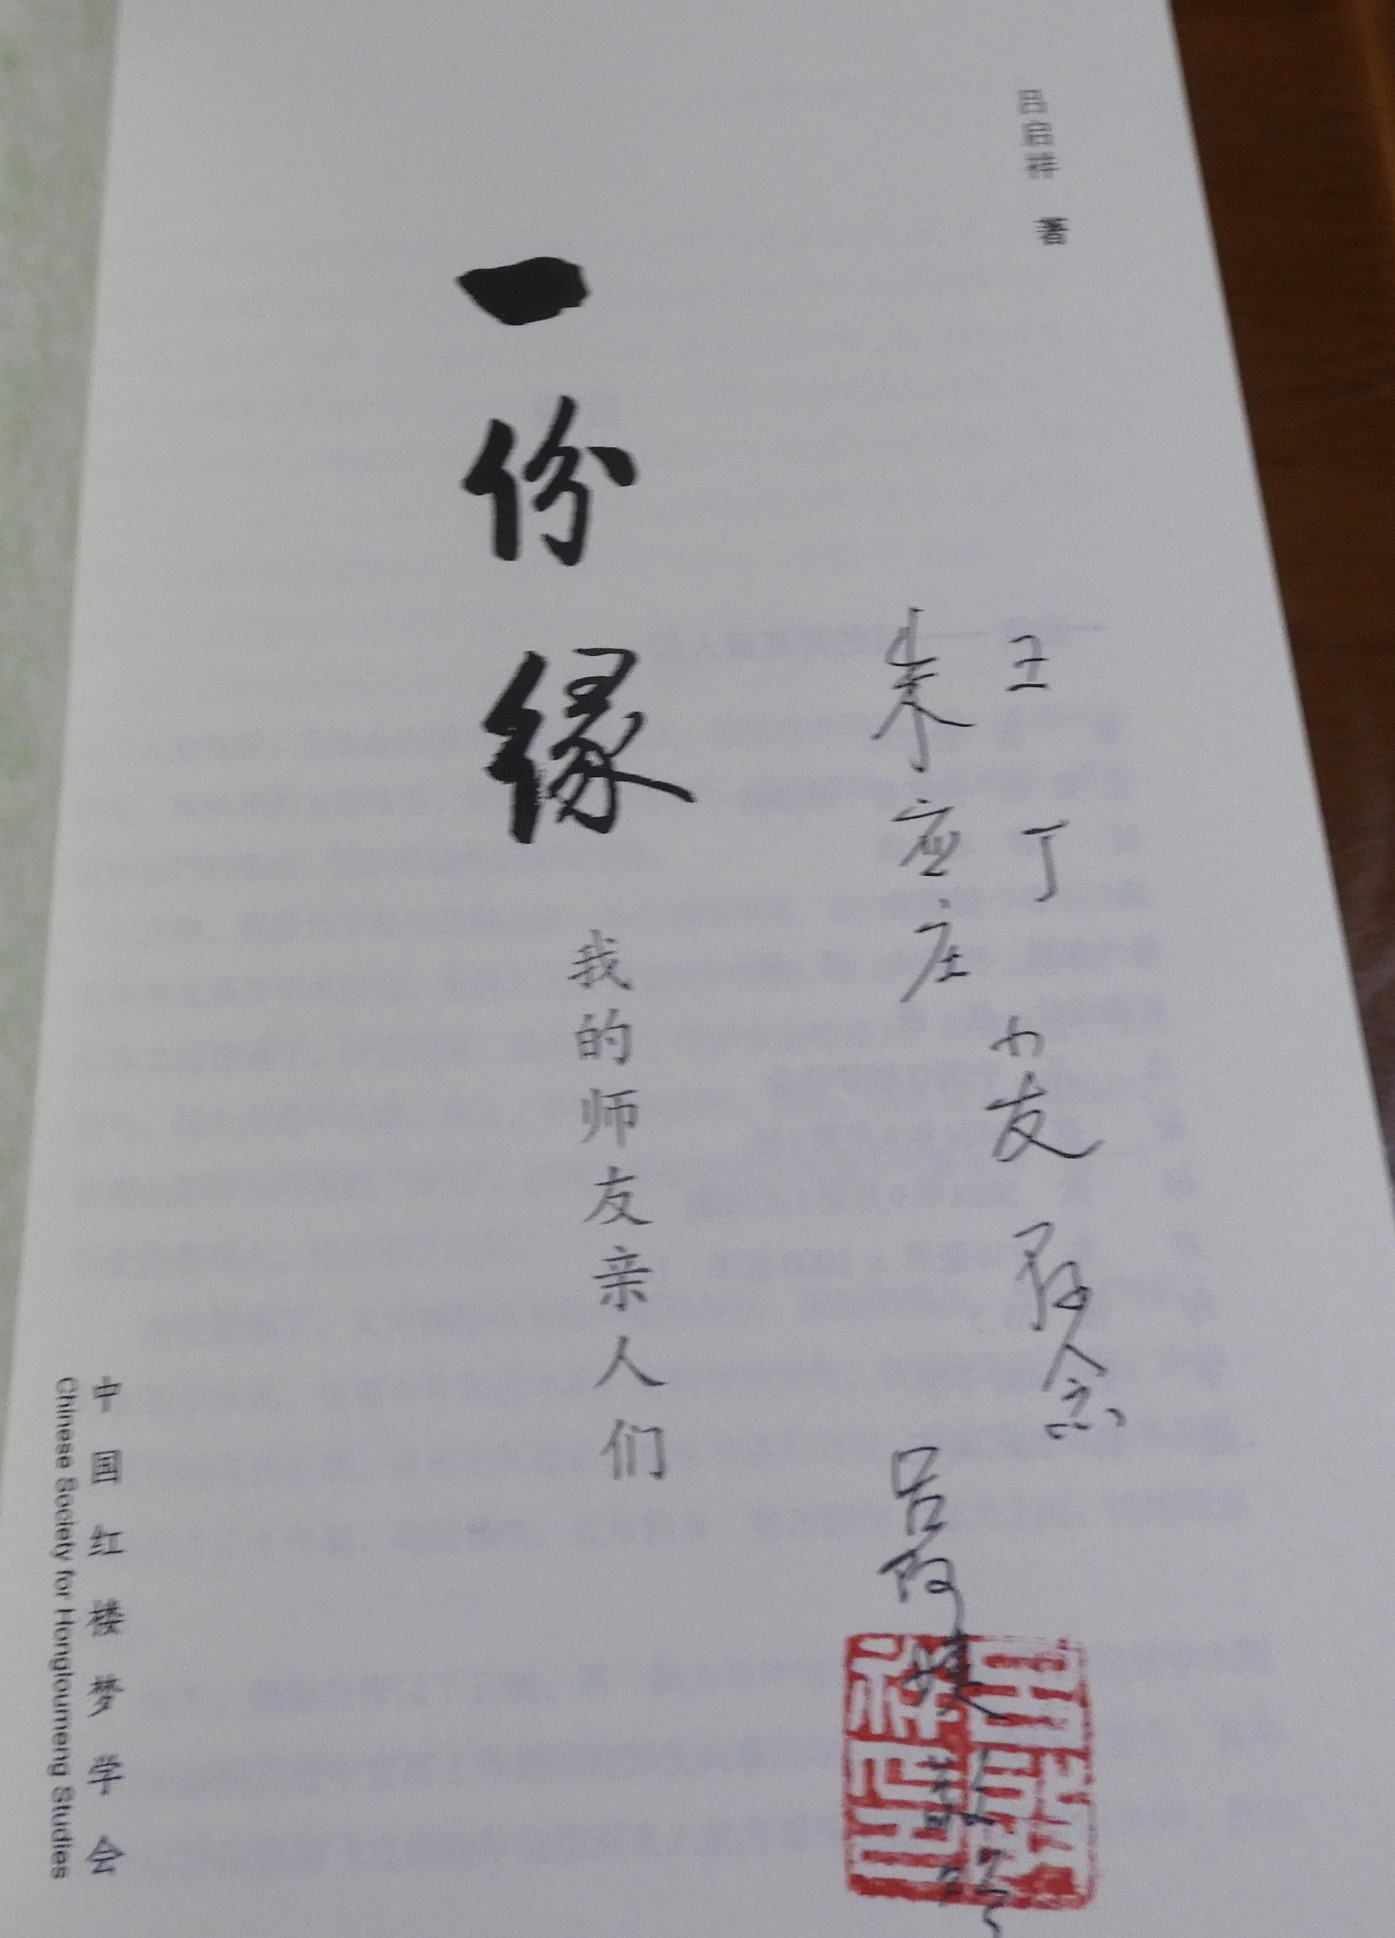 吕启祥 著
王丁小友 存念
朱应庄
吕启祥印
一份缘
我的师友亲人们
中国红楼梦学会
Chinese Society for Hongloumeng Studies